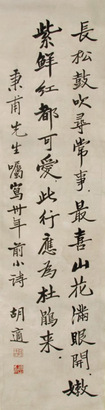 長松鼓吹尋常事，最喜山花滿眼開．嫩
紫鮮紅都可愛，此行應為杜鵑來．
秉甫先生囑寫卅年前小詩 胡適